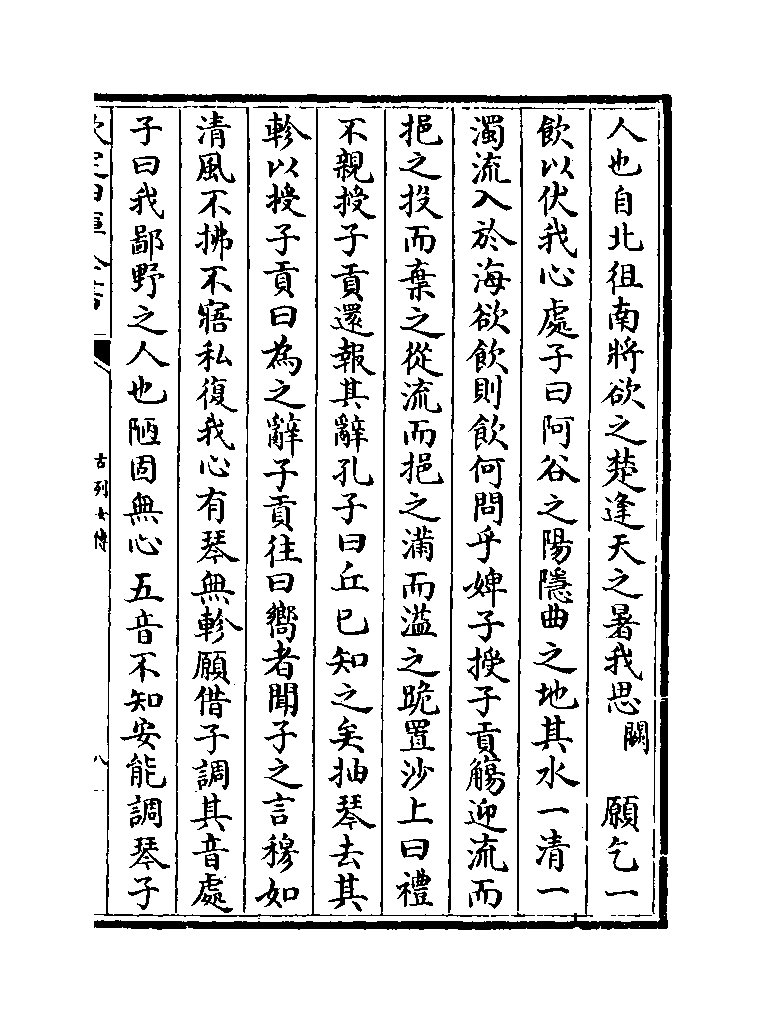 人也自北徂南將欲之楚逢天之暑我思闕願乞一
飲以伏我心處子曰阿谷之陽隱曲之地其水一清一
濁流入於海欲飲則飲何問乎婢子授子貢觴迎流而
挹之投而棄之從流而挹之滿而溢之跪置沙上曰禮
不親授子貢還報其辭孔子曰丘已知之矣抽琴去其
軫以授子貢曰為之辭子貢往曰嚮者聞子之言穆如
清風不拂不寤私復我心有琴無軫願借子調其音處
子曰我鄙野之人也陋固無心五音不知安能調琴子
欽定四庫全書
古列女傳
八